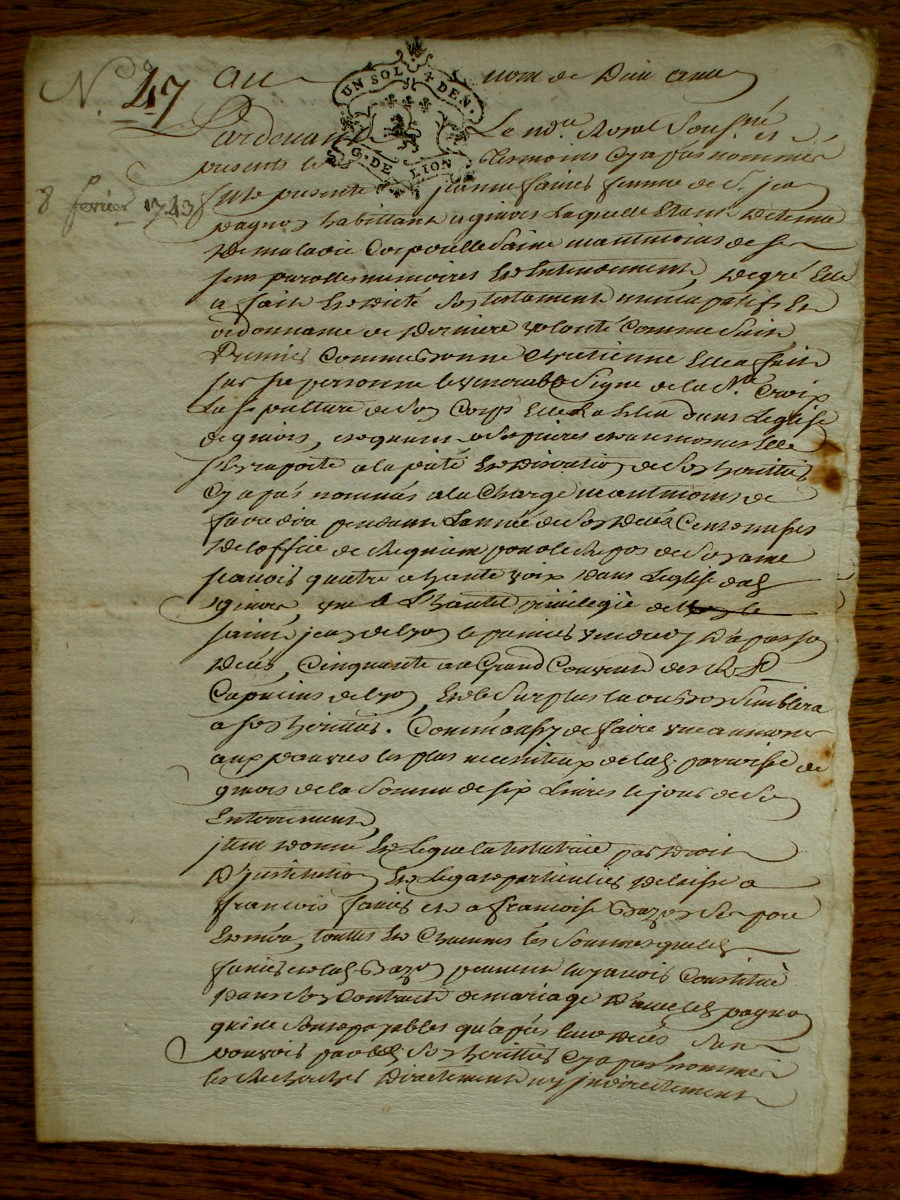 N.o 47 au nom de Dieu amen
UN SOL 4 DEN.
G. DE LION
Pardevant Le no.re Royal Sous.né et
presents les tesmoins cy apres nommés
8 fevrier 1743 fut presente jeanne faures femme de S. jean
pagnon habittant a givors Laquelle Etant detenue
de maladie Corporelle Saine neantmoins de ses
sens parolle memoires Et Entendement, de gré Elle
a fait Et dicté Son testament nuncupatif Et
ordonnance de derniere volonté Comme Suit
Premier Comme bonne Chretienne Elle a fait
sur sa personne le venerable Signe de la S.te Croix
La Sepulture de Son Corps Elle La Eslu dans L'eglise
de givors, et quant a Ses prieres et aumones Elle
s'en raporte a la pieté Et devotion de Ses heritiers
Cy apres nommés a la Charge neantmoins de
faire dire pendant L'année de Son décés Cent messes
de l'office de Requiem pour le Repos de Son ame
scavoir quatre a haute voix dans L'eglise dud
givors, une a L'hautel privilegié de
saint jean de Lyon le premier vendredy d'apres son
décés, Cinquante au Grand Couvent des R. P.
Capucins de Lyon, Et le Surplus la ou bon Semblera
a Ses heritiers. Comme aussy de faire une aumone
aux pauvres les plus necessiteux de lad. parroisse de
givors de la Somme de six Livres le jour de Son
Enterrement,
jtem donne Et Legue la testatrice par droit
D'jnstitution Et Legat particulier delaisse a
francois faures et a francoise Ses pere
Et mere, touttes Et Chacunes les Sommes que led
faures et lad. peuvent luy avoir Constitué
dans Son Contract de mariage d'avec led pagnon
qui ne Sont payables qu'apres leur décés Sans
pouvoir par Ses heritiers Cy apres nommés
les rechercher Directement ny jndirectement